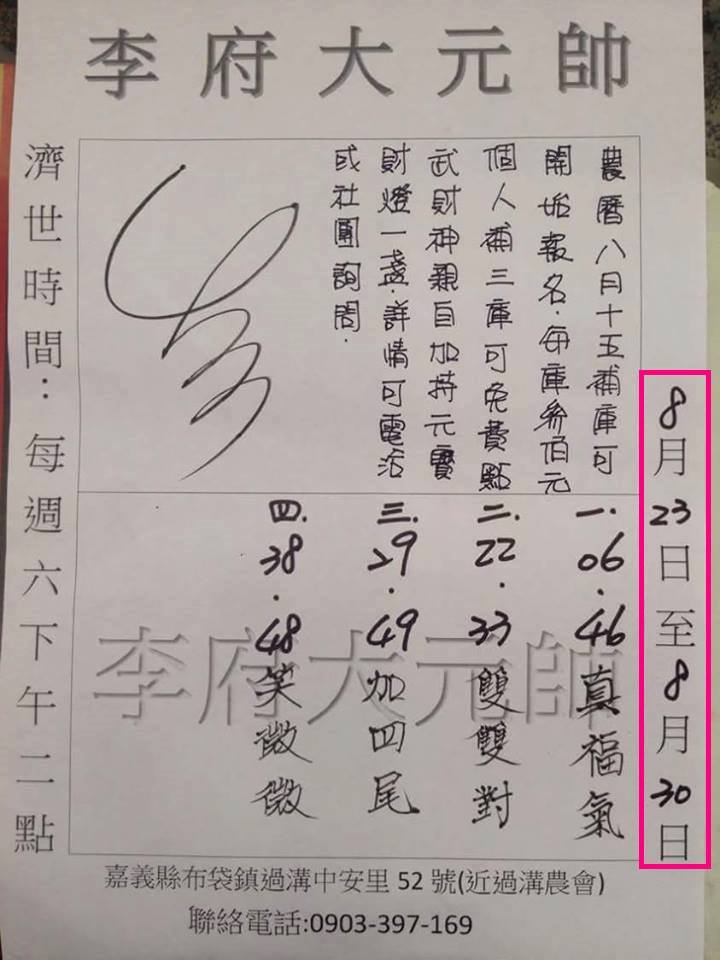 李府大元帥
8月23日至8月30日
農曆八月十五補庫可
開始報名．每庫參佰元
個人補三庫可免費點
武財神親自加持元寶
財燈一盞．詳情可電洽
或社團詢問．
一．06．46真福氣
二．22．33雙雙對
三．29．49加四尾
四．38．48笑微微
李府大元帥
濟世時間：每週六下午二點
嘉義縣布袋鎮過溝中安里 52 號(近過溝農會)
聯絡電話:0903-397-169